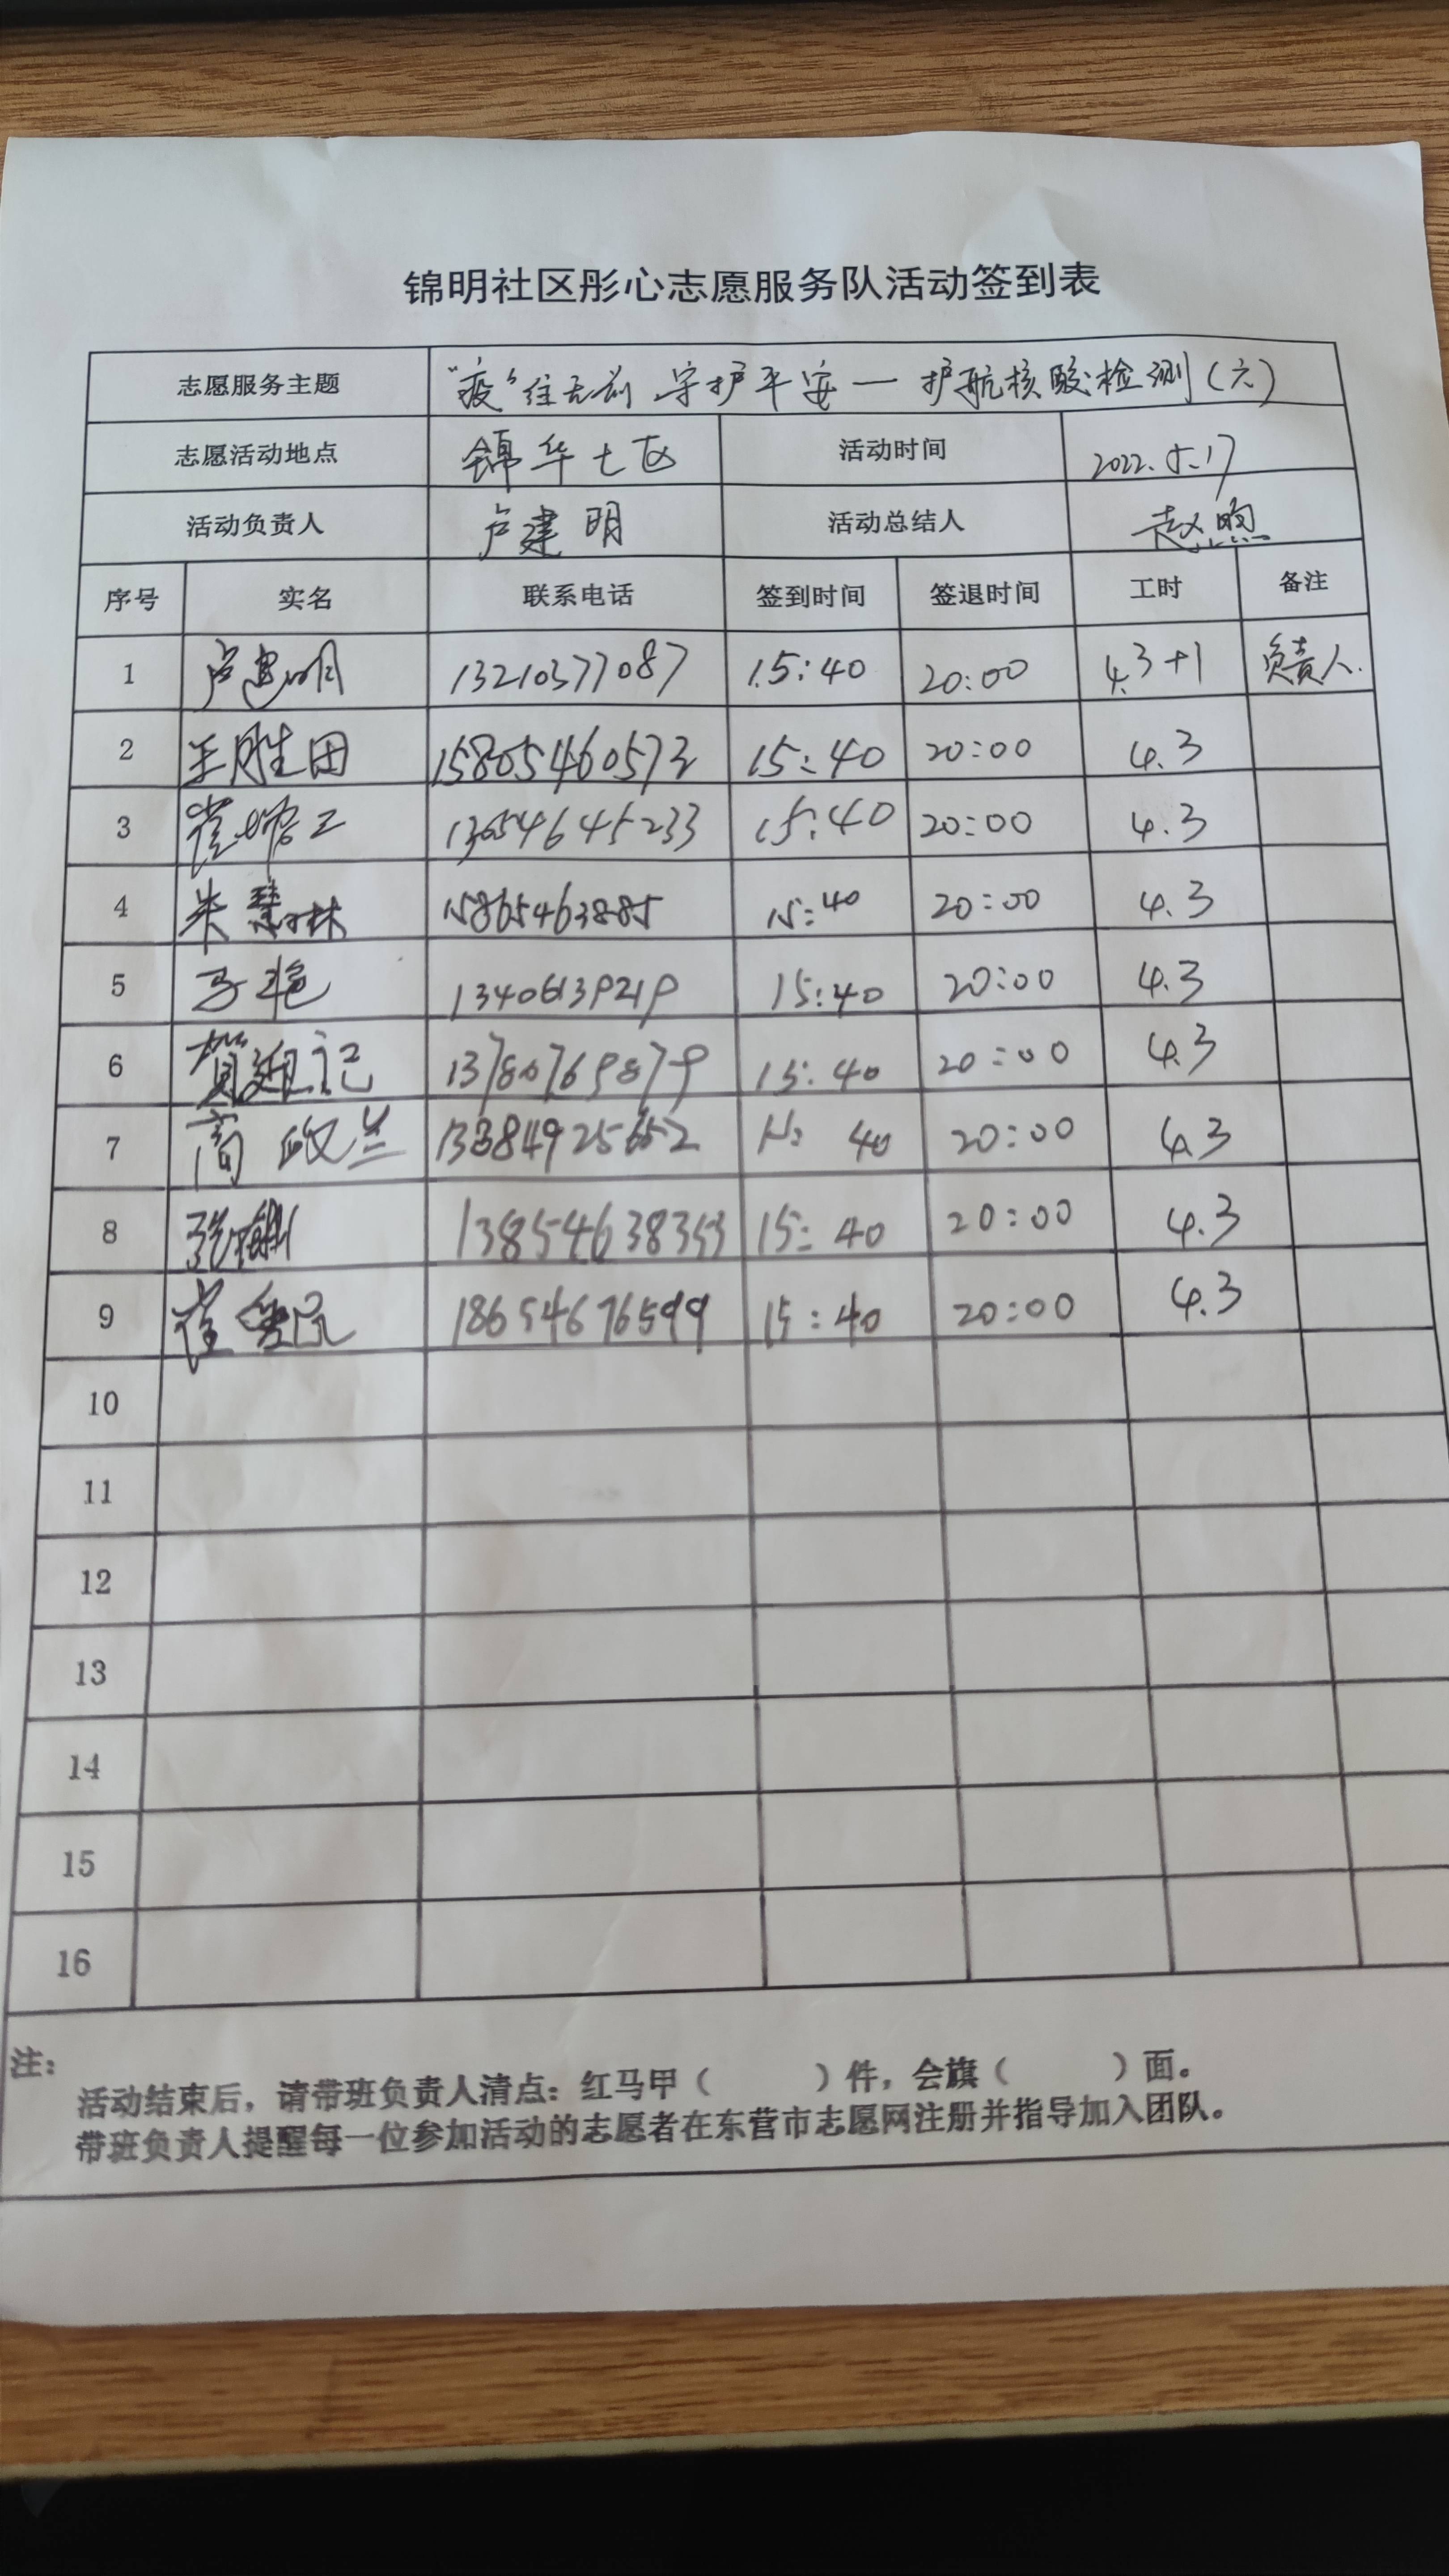 锦明社区彤心志愿服务队活动签到表
志愿服务主题 “疫”往无前 守护平安一护航核酸检测(六)
志愿活动地点 锦华七区 活动时间 2022.5.17
活动负责人 卢建明 活动总结人 赵煦
序号 实名 联系电话 签到时间 签退时间 工时 备注
1 卢建明 13210377087 15:40 20:00 4.3+1 负责人.
2 王胜田 15805460572 15:40 20:00 4.3
3 13654645233 15:40 20:00 4.3
4 朱慧林 15865463885 15:40 20:00 4.3
5 马艳 13406139219 15:40 20:00 4.3
6 贺延记 13780769879 15:40 20:00 4.3
7 高政兰 15:40 20:00 4.3
8 13854638353 15:40 20:00 4.3
9 18654676599 15:40 20:00 4.3
10
11
12
13
14
15
16
注:
活动结束后，请带班负责人清点：红马甲（ ）件，会旗（ ）面。
带班负责人提醒每一位参加活动的志愿者在东营市志愿网注册并指导加入团队。